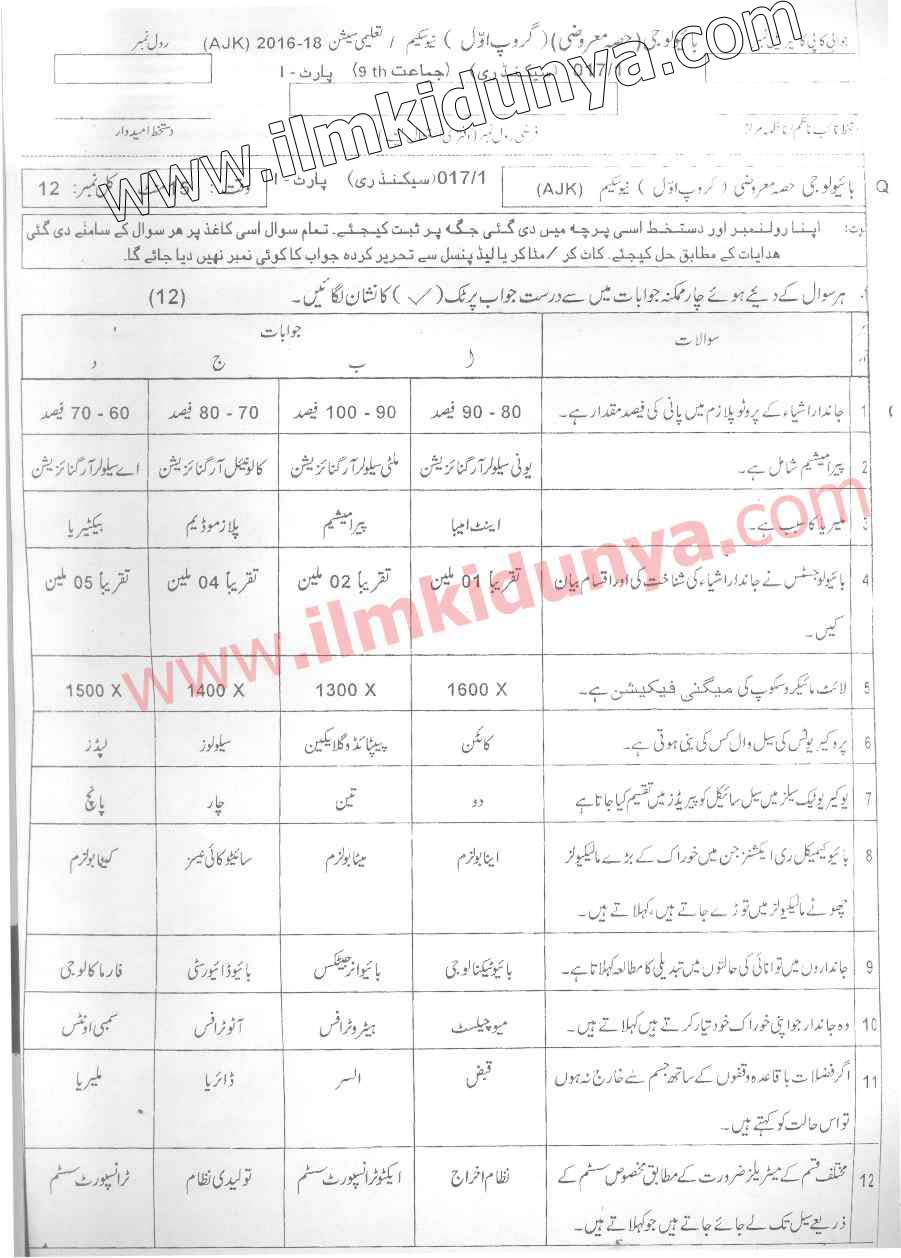 بائیولوجی (حصہ معروضی) (گروپ اوّل) نیو سکیم / تعلیمی سیشن 18-2016 (AJK) رول نمبر
017/1 (سیکنڈری) (جماعت 9th) پارٹ - I
دستخط امیدوار
بائیولوجی حصہ معروضی (گروپ اوّل) نیو سکیم (AJK)
017/1 (سیکنڈری) پارٹ - I
وقت: 15 کل نمبر: 12
اپنا رولنمبر اور دستخط اسی پرچہ میں دی گئی جگہ پر ثبت کیجئے۔ تمام سوال اسی کاغذ پر هر سوال کے سامنے دی گئی
هدایات کے مطابق حل کیجئے۔ کاٹ کر / مٹا کر یا لیڈ پنسل سے تحریر کرده جواب کا کوئی نمبر نهیں دیا جائے گا۔
ہر سوال کے دیئے ہوئے چار ممکنہ جوابات میں سے درست جواب پر ٹک (✓) کا نشان لگائیں۔ (12)
سوالات جوابات
ا ب ج د
1 جاندار اشیاء کے پروٹوپلازم میں پانی کی فیصد مقدار ہے۔ 80 - 90 فیصد 90 - 100 فیصد 70 - 80 فیصد 60 - 70 فیصد
2 پیرامیشیم شامل ہے۔ یونی سیلولر آرگنائزیشن ملٹی سیلولر آرگنائزیشن کالونیئل آرگنائزیشن اے سیلولر آرگنائزیشن
3 ملیریا کا سبب ہے۔ اینٹ امیبا پیرامیشیم پلازموڈیم بیکٹیریا
4 بائیولوجسٹس نے جاندار اشیاء کی شناخت کی اور اقسام بیان تقریباً 01 ملین تقریباً 02 ملین تقریباً 04 ملین تقریباً 05 ملین
کیں۔
5 لائٹ مائیکروسکوپ کی میگنی فیکیشن ہے۔ 1600 X 1300 X 1400 X 1500 X
6 پروکیریوٹس کی سیل وال کس کی بنی ہوتی ہے۔ کائٹن پیپٹائڈوگلائیکین سیلولوز لپڈز
7 یوکیریوٹیک سیلز میں سیل سائیکل کو پیریڈز میں تقسیم کیا جاتا ہے دو تین چار پانچ
8 بائیوکیمیکل ری ایکشنز جن میں خوراک کے بڑے مالیکیولز اینابولزم میٹابولزم سائیٹوکائی نیسز کیٹابولزم
چھوٹے مالیکیولز میں توڑے جاتے ہیں، کہلاتے ہیں۔
9 جانداروں میں توانائی کی حالتوں میں تبدیلی کا مطالعہ کہلاتا ہے۔ بائیوٹیکنالوجی بائیوانرجیٹکس بائیوڈائیورسٹی فارماکالوجی
10 وہ جاندار جو اپنی خوراک خود تیار کرتے ہیں کہلاتے ہیں۔ میوچیلسٹ ہیٹروٹرافس آٹوٹرافس سمبی اونٹس
11 اگر فضلات باقاعدہ وقفوں کے ساتھ جسم سے خارج نہ ہوں قبض السر ڈائریا ملیریا
تو اس حالت کو کہتے ہیں۔
12 مختلف قسم کے میٹریلز ضرورت کے مطابق مخصوص سسٹم کے نظام اخراج ایکٹو ٹرانسپورٹ سسٹم تولیدی نظام ٹرانسپورٹ سسٹم
ذریعے سیل تک لے جائے جاتے ہیں جو کہلاتے ہیں۔
www.ilmkidunya.com
www.ilmkidunya.com